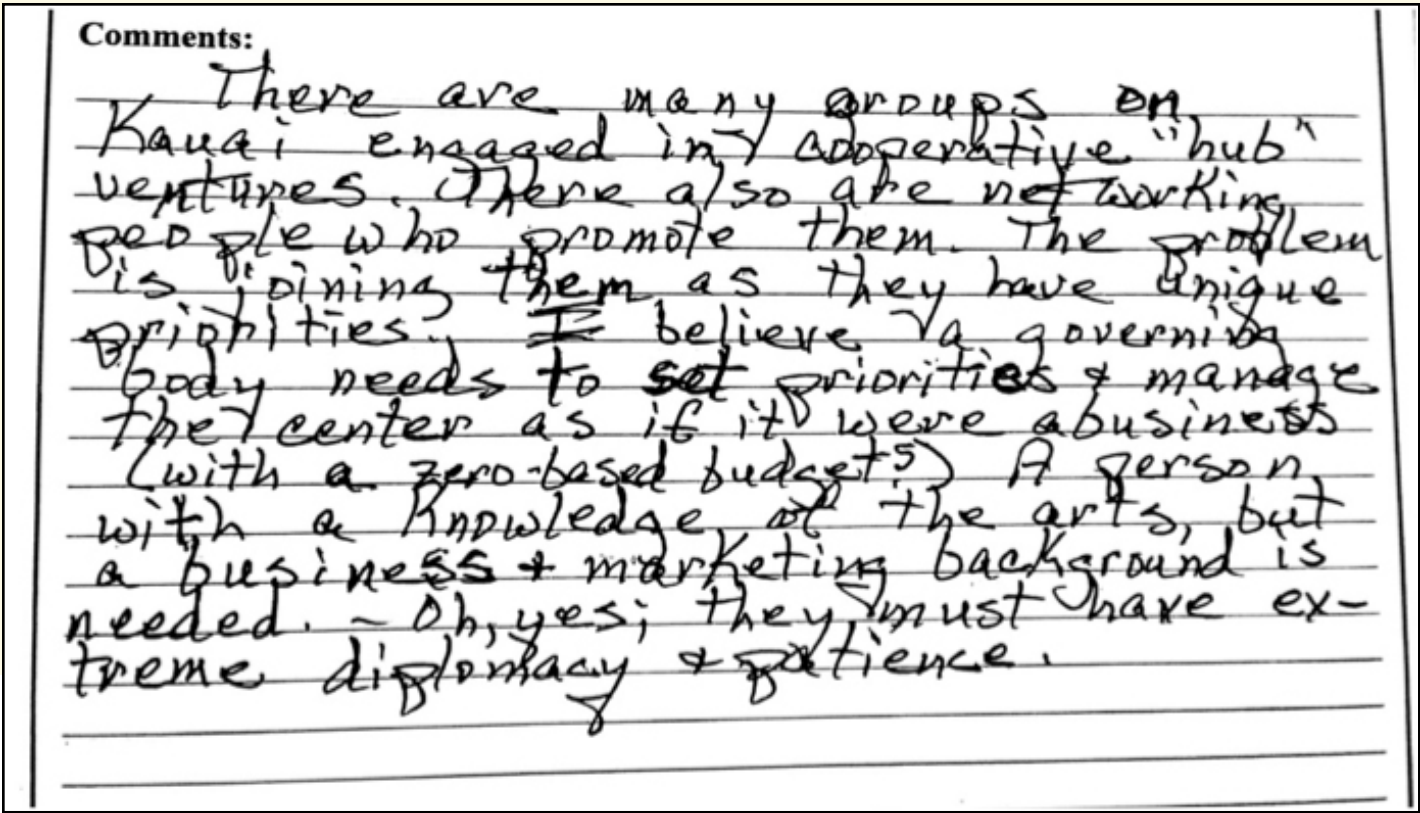 Comments:
There are many groups on
Kauai engaged in cooperative "hub"
ventures. There also are networking
people who promote them. The problem
is joining them as they have unique
priorities. I believe a governing
body needs to set priorities & manage
the center as if it were a business
(with a zero-based budget!) A person
with a knowledge of the arts, but
a business & marketing background is
needed. - Oh, yes; they must have ex-
treme diplomacy & patience.